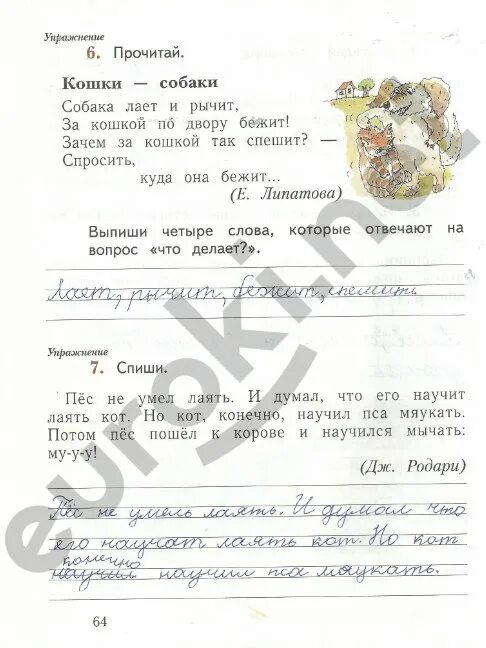 Упражнение
6. Прочитай.
Кошки — собаки
Собака лает и рычит,
За кошкой по́ двору бежит!
Зачем за кошкой так спешит? —
Спросить,
куда она бежит...
(Е. Липатова)
Выпиши четыре слова, которые отвечают на
вопрос «что делает?».
Лает, рычит, бежит, спешит.
Упражнение
7. Спиши.
Пёс не умел лаять. И думал, что его научит
лаять кот. Но кот, конечно, научил пса мяукать.
Потом пёс пошёл к корове и научился мычать:
му-у-у!
(Дж. Родари)
Пёс не умель лаять. И думал что
его научат лаять кот. Но кот
конечно
научил научил пса мяукать.
64
euroki.net